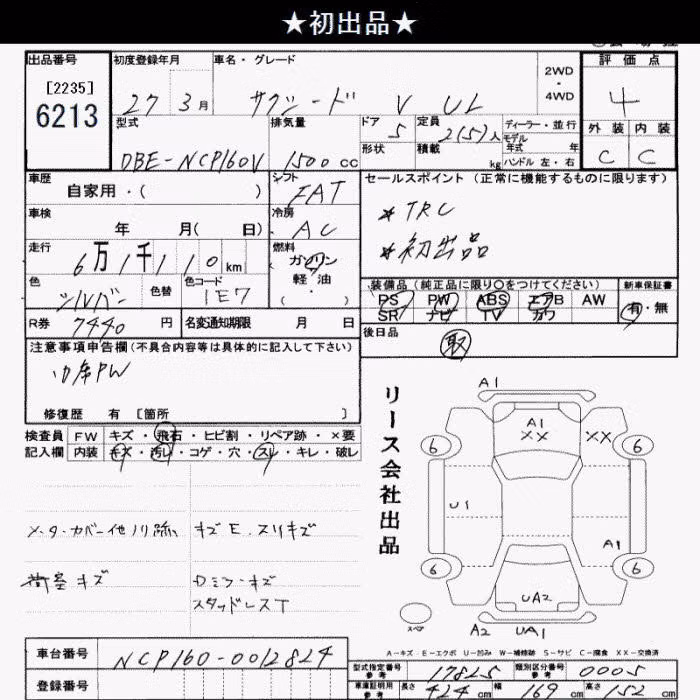 ★初出品★
出品番号 初度登録年月 車名・グレード 評価点
[2235]
6213
27 3月 サクシード V UL 2WD・4WD 4
型式 排気量 ドア 定員 ディーラー・並行 外装 内装
DBE-NCP160V 1500cc 5 2(5)人 モデル年式 年 C C
形状 積載 kg ハンドル 左・右
車歴 シフト セールスポイント(正常に機能するものに限ります)
自家用・( ) FAT
＊TRC
車検 冷房
年 月( 日) AC
＊初出品
走行 燃料
6万1千110km ガソリン・軽油・( )
色 色替 色コード 装備品(純正品に限り○をつけてください) 新車保証書
シルバー 1E7 PS PW ABS エアB AW 有・無
SR ナビ TV カワ
R券 7440円 名変通知期限 月 日 後日品
取
注意事項申告欄(不具合内容等は具体的に記入して下さい)
修復歴 有 [箇所 ]
検査員 FW キズ・飛石・ヒビ割・リペア跡・×要
記入欄 内装 キズ・汚レ・コゲ・穴・スレ・キレ・破レ
メーターカバー他ノリ跡、 キズE.スリキズ
荷室キズ Dミラーキズ
スタッドレスT
リース会社出品
A1
A1
XX XX
6 6
U1 A1
6 6
UA2
スペア A2 UA1
A－キズ E－エクボ U－凹み W－補修跡 S－サビ C－腐食 XX－交換済
車台番号 NCP160-0012824
登録番号
型式指定番号 参考 17825 類別区分番号 参考 0005
車庫証明用 参考 長さ 424cm 幅 169cm 高さ 152cm